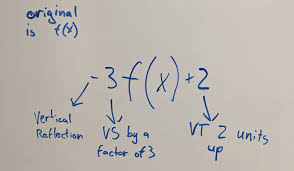 original
is f(x)
-3f(x)+2
Vertical
Reflection
VS by a
factor of 3
VT 2 units
up